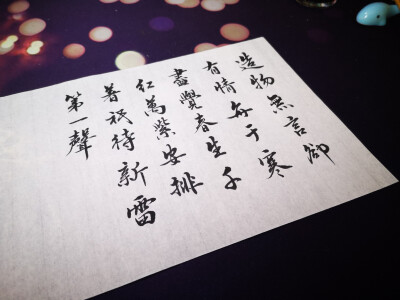 造物無言卻
有情每于寒
盡覺春生千
紅萬紫安排
著祇待新雷
第一聲